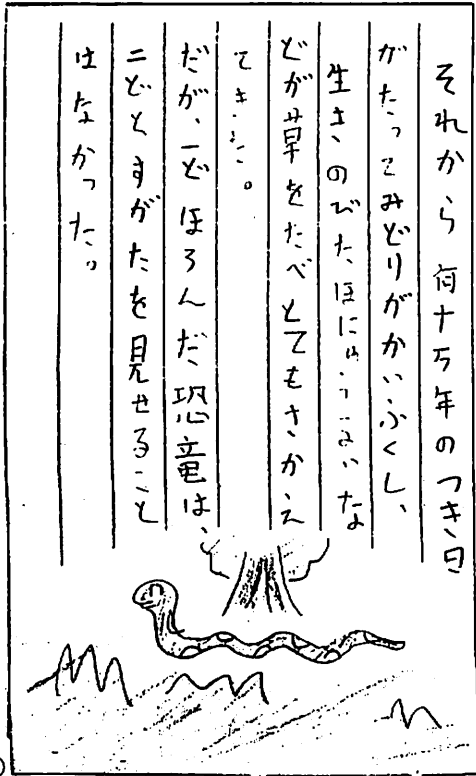 それから何十万年のつき日
がたってみどりがかいふくし、
生きのびたほにゅうるいな
どが草をたべとてもさかえ
てきた。
だが、一どほろんだ恐竜は、
二どとすがたを見せること
はなかった。